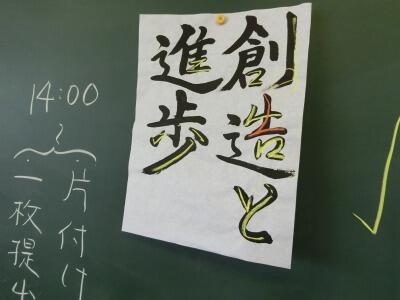 創造と
進歩
14:00
〜
・片付け
・一枚提出